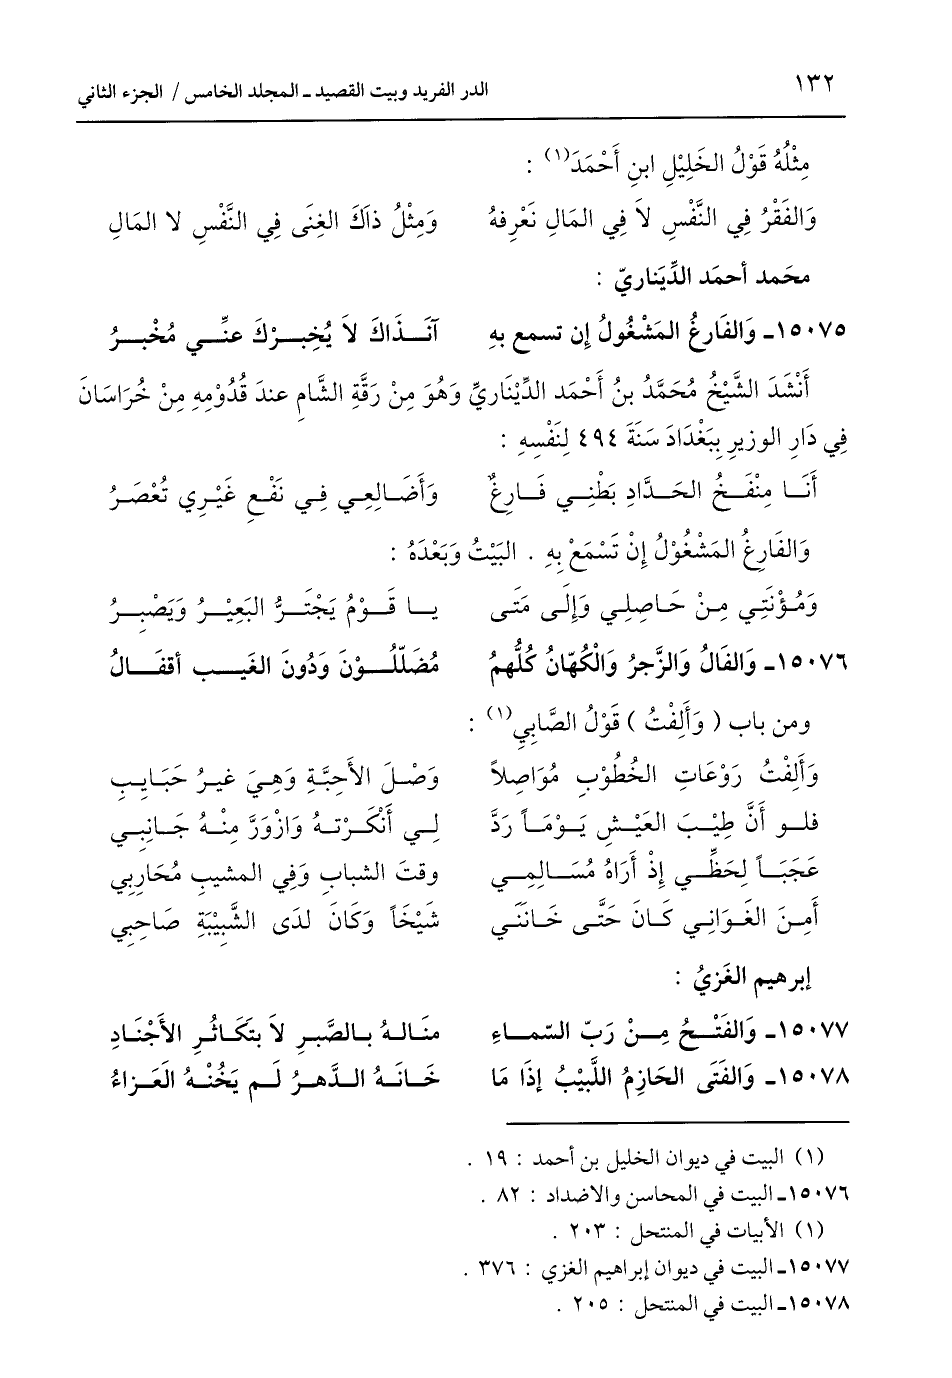 ١٣٢ الدر الفريد وبيت القصيد ـ المجلد الخامس / الجزء الثاني
مِثْلُهُ قَوْلُ الخَلِيْلِ ابنِ أَحْمَدَ(١) :
وَالفَقْرُ فِي النَّفْسِ لاَ فِي المَالِ نَعْرِفهُ وَمِثْلُ ذاَكَ الغِنَى فِي النَّفْسِ لا المَالِ
محَمد أحمَد الدِّيَناريّ :
١٥٠٧٥ـ وَالفَارِغُ المَشْغُولُ إن تسمع بهِ آنَــذَاكَ لاَ يُخِبــرْكَ عنِّــي مُخْبــرُ
أَنْشَدَ الشَّيْخُ مُحَمَّدُ بنُ أَحْمَد الدِّيْنَاريِّ وَهُوَ مِنْ رَقَّةِ الشَّامِ عندَ قدُوْمِهِ مِنْ خُرَاسَانَ
فِي دَارِ الوزيرِ بِبَغْدَادَ سَنَةَ ٤٩٤ لِنَفْسِهِ :
أَنَــا مِنْفَــخُ الحَــدَّادِ بَطْنِــي فَــارِغٌ وَأَضَــالِعِــي فِــي نَفْــعِ غَيْرِي تُعْصَرُ
وَالفَارِغُ المَشْغُوْلُ إِنْ تَسْمَعْ بِهِ . البَيْتُ وَبَعْدَهُ :
وَمُــؤْنَتِي مِــنْ حَــاصِلِــي وَإِلَــى مَتَى يــا قَــوْمُ يَجْتَــرُّ البَعِيْــرُ وَيَصْبِــرُ
١٥٠٧٦ـ وَالفَالُ وَالزَّجرُ وَالْكُهّانُ كُلُّهمُ مُضَلّلُــوْنَ وَدُونَ الغَيــب أقفَــالُ
ومن باب ( وَأَلِفْتُ ) قَوْلُ الصَّابِي(١) :
وَأَلِفْتُ رَوْعَاتِ الخُطُوْبِ مُوَاصِلاً وَصْــلَ الأَحِبَّةِ وَهِــيَ غيرُ حَبَايِبِ
فلــو أَنَّ طِيْــبَ العَيْــشِ يَــوْمَــاً رَدَّ لِــي أَنْكَــرْتــهُ وَازْوَرَّ مِنْــهُ جَــانِبــي
عَجَبَــاً لِحَظِّــي إِذْ أَرَاهُ مُسَــالِمِــي وقتَ الشبابِ وَفِي المشيبِ مُحَارِبي
أَمِــنَ الغَــوَانِــي كَــانَ حَتَّــى خَــانَنَي شَيْخَاً وَكَانَ لدَى الشَّبِيْبَةِ صَاحِبي
إبرهيم الغَزيُ :
١٥٠٧٧ـ وَالفَتْــحُ مِــنْ رَبّ السّماءِ منَالــهُ بــالصَّبرِ لاَ بتَكَاثُــرِ الأَجْنَــادِ
١٥٠٧٨ـ وَالفَتَى الحَازِمُ اللَّبيْبُ إذَا مَا خَــانَــهُ الــدَّهــرُ لَــم يَخُنْــهُ العَــزاءُ
(١) البيت في ديوان الخليل بن أحمد : ١٩ .
١٥٠٧٦ـ البيت في المحاسن والاضداد : ٨٢ .
(١) الأبيات في المنتحل : ٢٠٣ .
١٥٠٧٧ـ البيت في ديوان إبراهيم الغزي : ٣٧٦ .
١٥٠٧٨ـ البيت في المنتحل : ٢٠٥ .